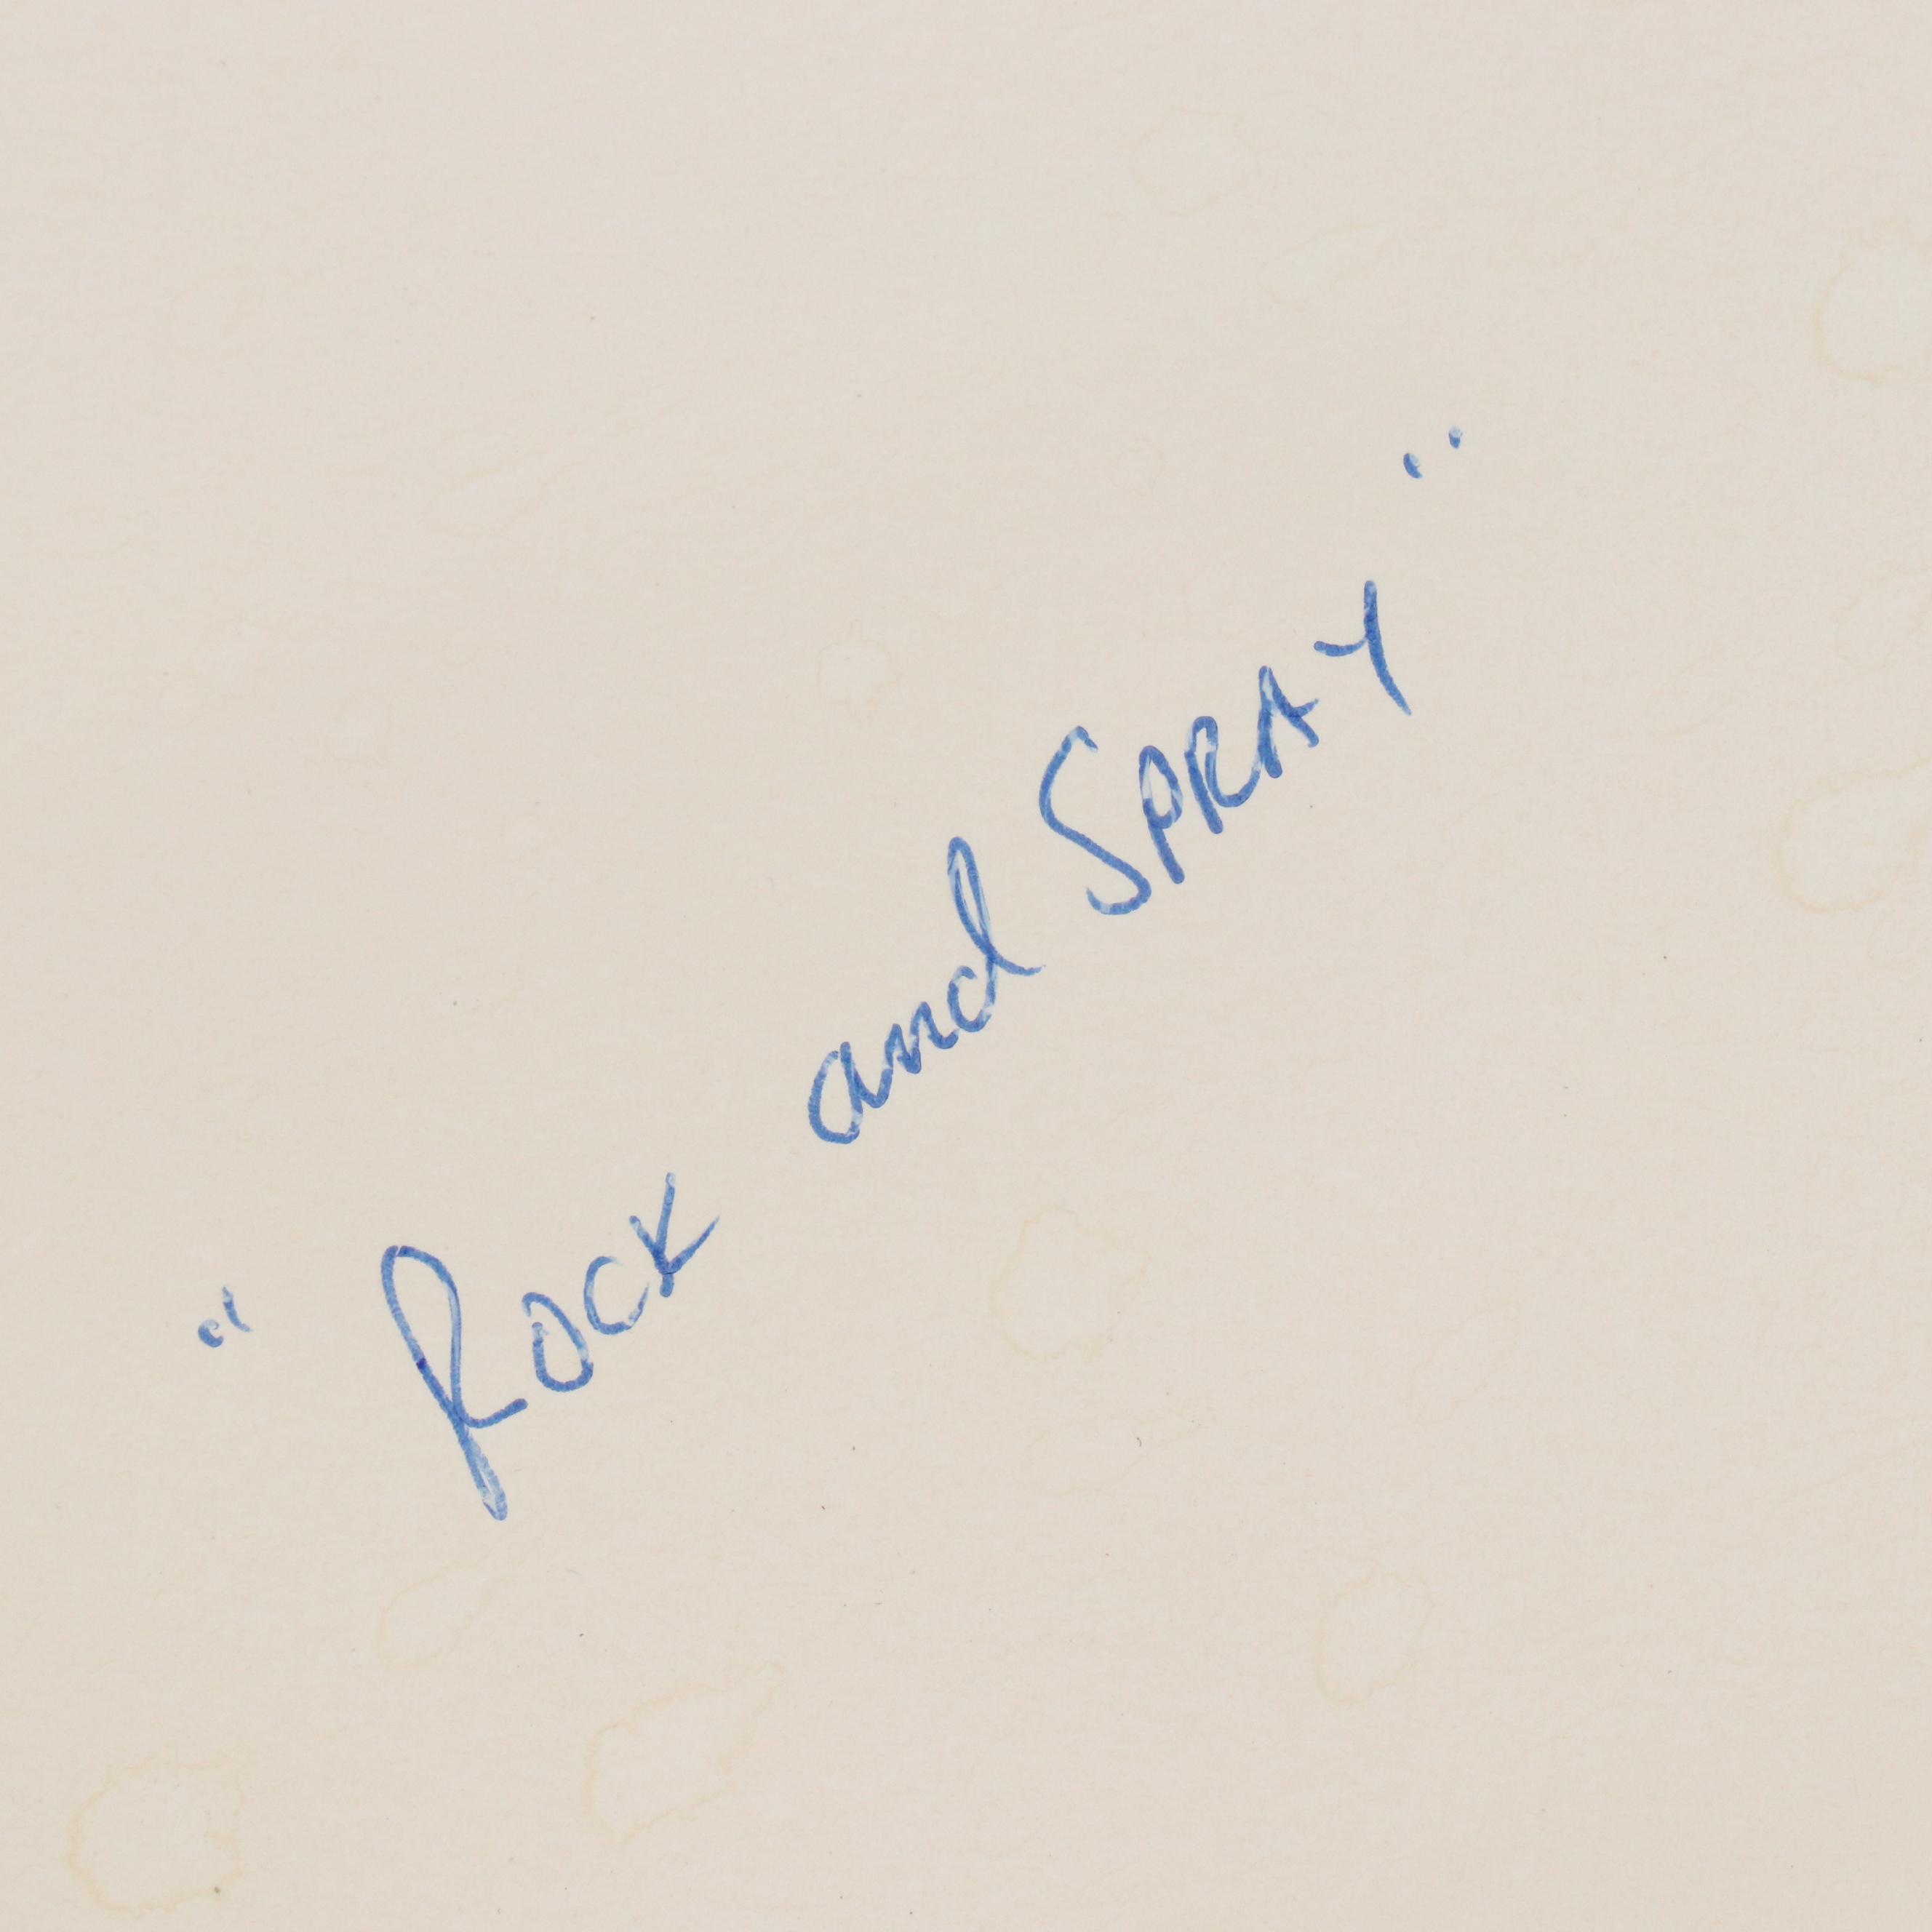 "Rock and SPRAY"